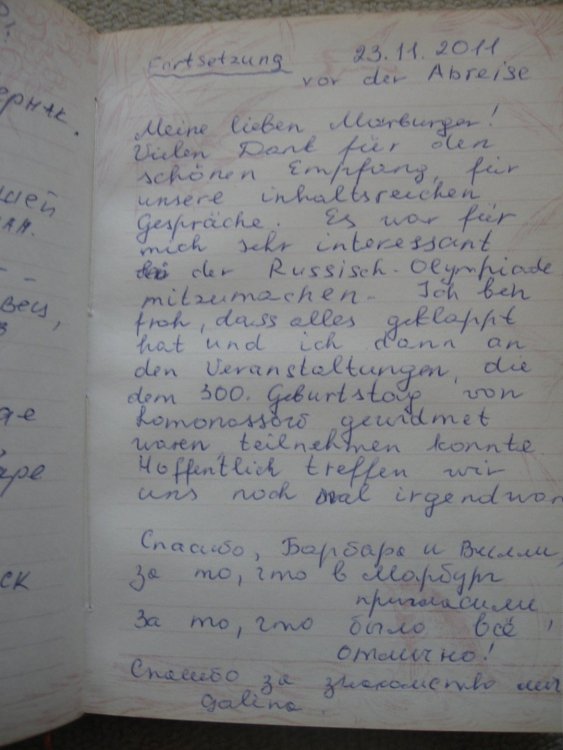 ерник.
шей
вец,
ск
Fortsetzung 23.11.2011
vor der Abreise
Meine lieben Marburger!
Vielen Dank für den
schönen Empfang, für
unsere inhaltsreichen
Gespräche. Es war für
mich sehr interessant
bei der Russisch-Olympiade
mitzumachen. Ich bin
froh, dass alles geklappt
hat und ich dann an
den Veranstaltungen, die
dem 300. Geburtstag von
Lomonossow gewidmet
waren, teilnehmen konnte
Hoffentlich treffen wir
uns noch mal irgendwan
Спасибо, Барбара и Вилли,
за то, что в Марбург
пригласили,
За то, что было всё
отлично!
Спасибо за знакомство
Galina.